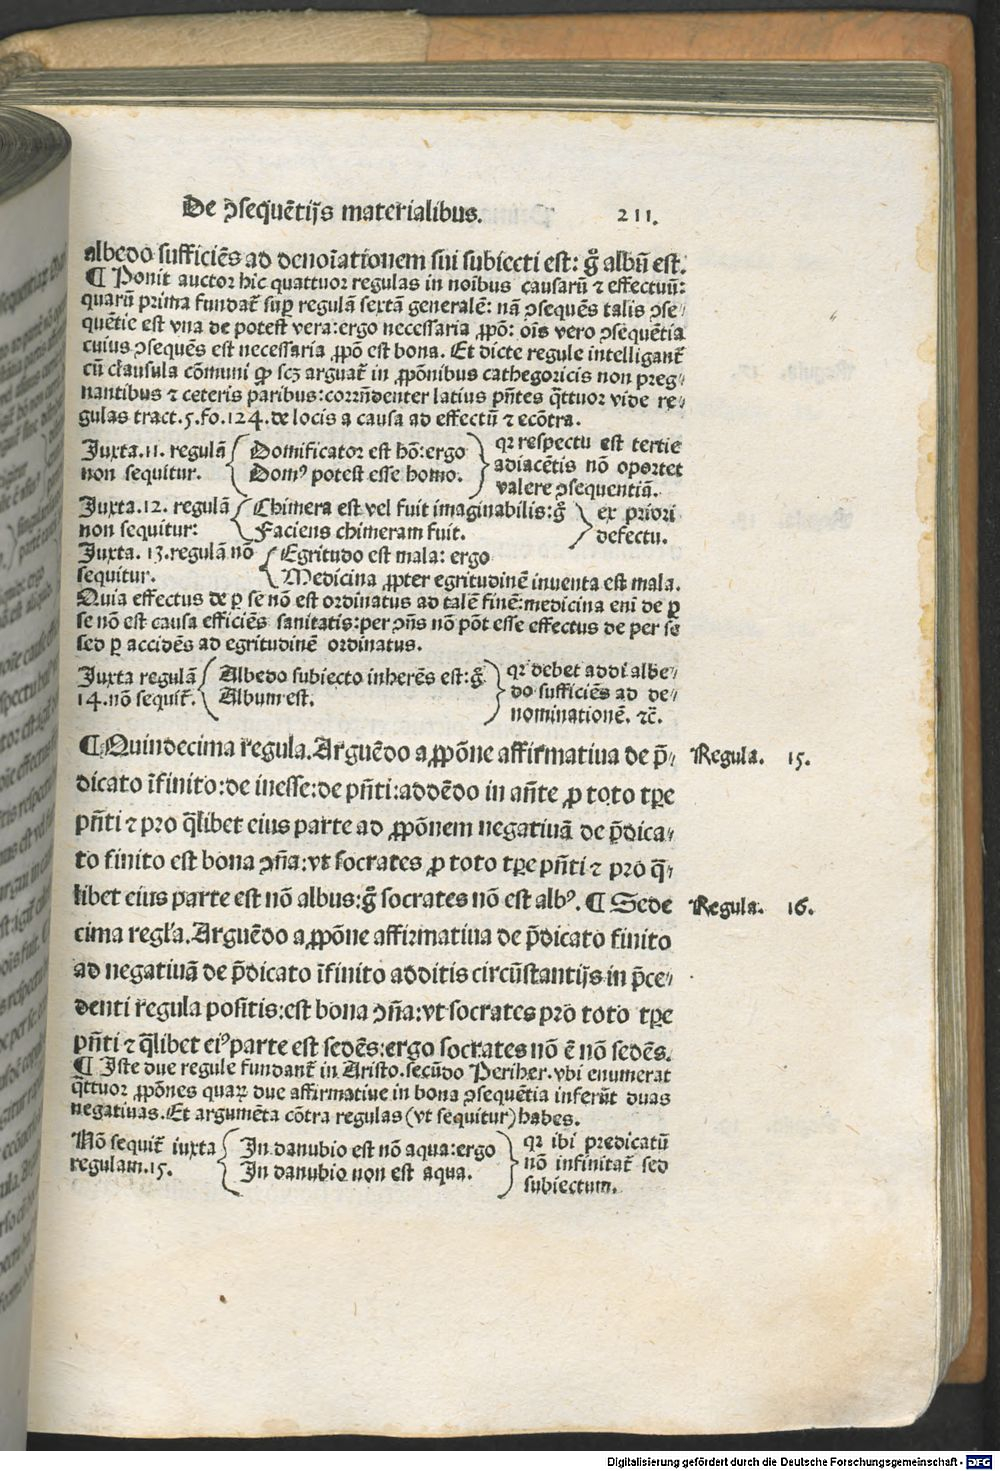 De ↄſequētijs materialibus. 211.
albedo ſufficiēs ad denoīationem ſui ſubiecti eſt: g̊ albū eſt.
¶ Ponit auctor hic quattuor regulas in noībus cauſarū ⁊ effectuū:
quarū prima fundat̄ ſuꝑ regulā ſextā generalē: nā ↄſequēs talis ↄſe⸗
quētie eſt vna de poteſt vera: ergo neceſſaria ꝓpō: oīs vero ↄſequētia
cuius ↄſequēs eſt neceſſaria ꝓpō eſt bona. Et dicte regule intelligant̄
cū clauſula cōmuni ꝙ ſcꝫ arguat̄ in ꝓpōnibus cathegoricis non preg⸗
nantibus ⁊ ceteris paribus: corrn̄denter latius pn̄tes q̄ttuor vide re⸗
gulas tract. 5. fo. 124. de locis a cauſa ad effectū ⁊ ecōtra.
Juxta. 11. regulā
non ſequitur.
Domificator eſt hō: ergo
Domꝰ poteſt eſſe homo.
qꝛ reſpectu eſt tertie
adiacētis nō oportet
valere ↄſequentiā.
Juxta. 12. regulā
non ſequitur:
Chimera eſt vel fuit imaginabilis: g̊
Faciens chimeram fuit.
ex priori
defectu.
Juxta. 13. regulā nō
ſequitur.
Egritudo eſt mala: ergo
Medicina ꝓpter egritudinē inuenta eſt mala.
Quia effectus de ꝑ ſe nō eſt ordinatus ad talē finē: medicina eni de ꝑ
ſe nō eſt cauſa efficiēs ſanitatis: per ↄn̄s nō pōt eſſe effectus de per ſe
ſed ꝑ accidēs ad egritudinē ordinatus.
Juxta regulā
14. nō ſequit̄.
Albedo ſubiecto inherēs eſt: g̊
Album eſt.
qꝛ debet addi albe⸗
do ſufficiēs ad de⸗
nominationē. ⁊c̄.
¶ Quindecima regula. Arguēdo a ꝓpōne affirmatiua de p̄⸗
Regula. 15.
dicato īfinito: de ineſſe: de pn̄ti: addēdo in an̄te ꝓ toto tꝑe
pn̄ti ⁊ pro q̄libet eius parte ad ꝓpōnem negatiuā de p̄dica⸗
to finito eſt bona ↄn̄a: vt ſocrates ꝓ toto tꝑe pn̄ti ⁊ pro q̄⸗
libet eius parte eſt nō albus: g̊ ſocrates nō eſt albꝰ. ¶ Sede
Regula. 16.
cima regl̄a. Arguēdo a ꝓpōne affirmatiua de p̄dicato finito
ad negatiuā de p̄dicato īfinito additis circūſtantijs in p̄ce⸗
denti regula poſitis: eſt bona ↄn̄a: vt ſocrates pro toto tꝑe
pn̄ti ⁊ q̄libet eiꝰ parte eſt ſedēs: ergo ſocrates nō ē nō ſedēs.
¶ Iſte due regule fundant̄ in Ariſto. ſecūdo Periher. vbi enumerat
q̄ttuor ꝓpōnes quaꝝ due affirmatiue in bona ↄſequētia inferūt duas
negatiuas. Et argumēta cōtra regulas (vt ſequitur) habes.
Nō ſequit̄ iuxta
regulam. 15.
In danubio eſt nō aqua: ergo
In danubio non eſt aqua.
qꝛ ibi predicatū
nō infinitat̄ ſed
ſubiectum.
Digitalisierung gefördert durch die Deutsche Forschungsgemeinschaft - DFG